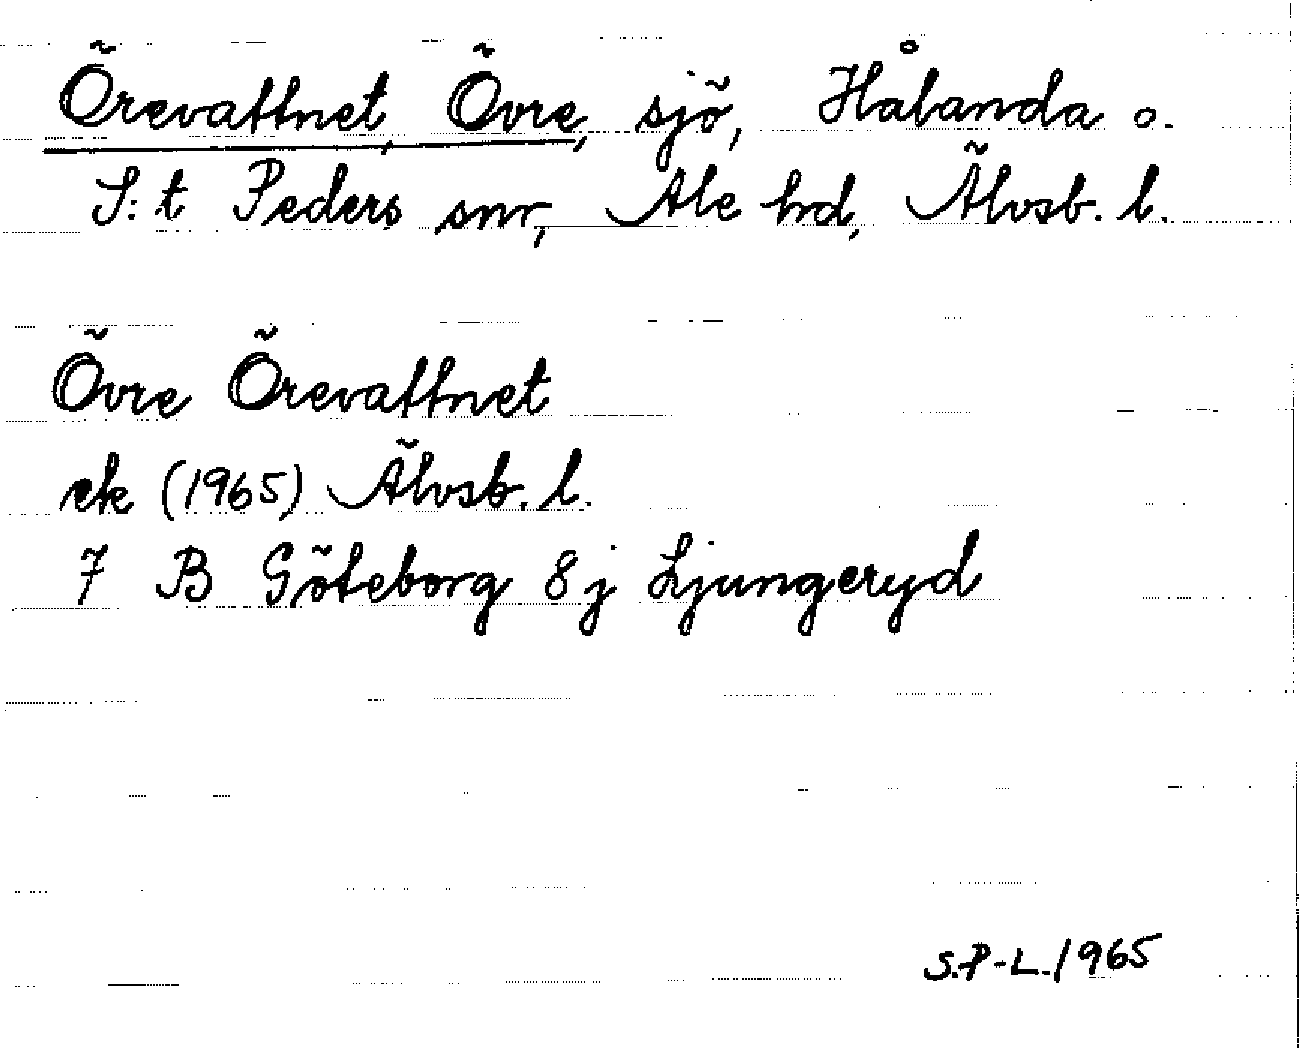 Örevattnet, Övre, sjö, Hålanda o.
S:t Peders snr, Ale hd, Älvsb. l.
Övre Örevattnet
ek (1965) Älvsb. l.
7 B Göteborg 8 j Ljungeryd
S.P-L./1965